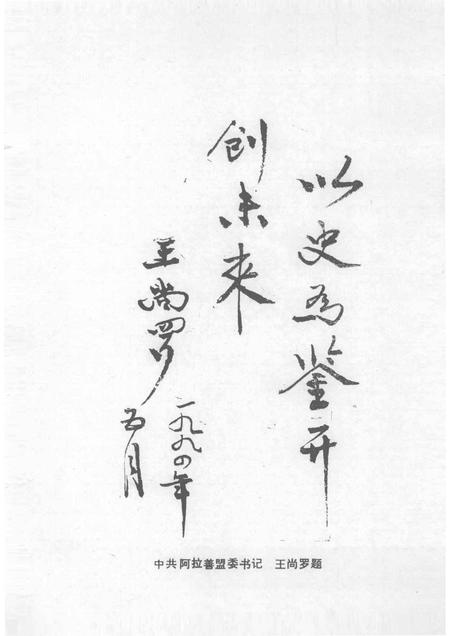 以史为鉴开
创未来
王尚罗
一九九四年
五月
中共阿拉善盟委书记 王尚罗题